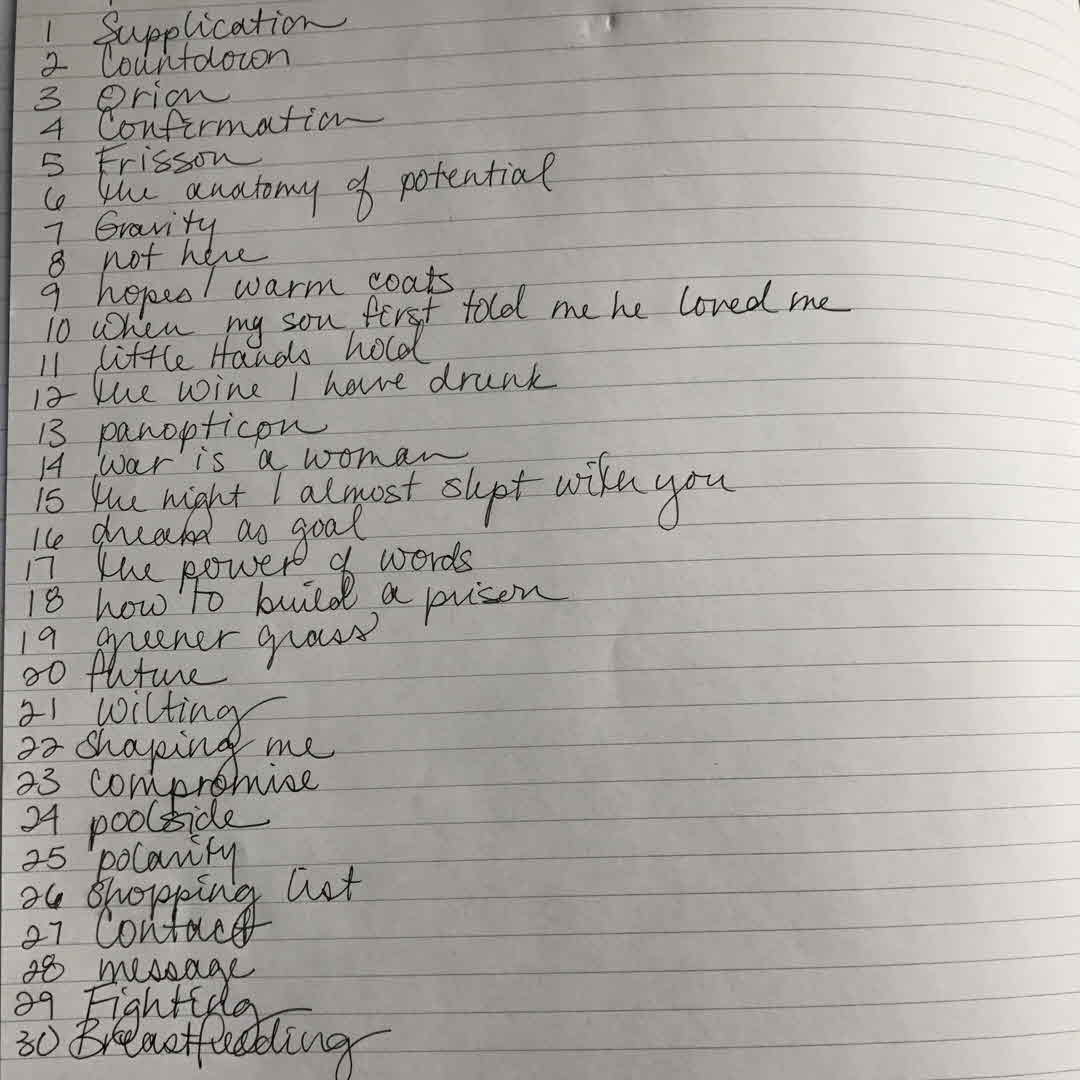 1 Supplication
2 Countdown
3 Orion
4 Confirmation
5 Frisson
6 the anatomy of potential
7 Gravity
8 not here
9 hopes / warm coats
10 when my son first told me he loved me
11 little Hands hold
12 the wine I have drunk
13 panopticon
14 war is a woman
15 the night I almost slept with you
16 dream as goal
17 the power of words
18 how to build a prison
19 greener grass
20 future
21 wilting
22 shaping me
23 compromise
24 poolside
25 polarity
26 shopping list
27 Contact
28 message
29 Fighting
30 Breastfeeding